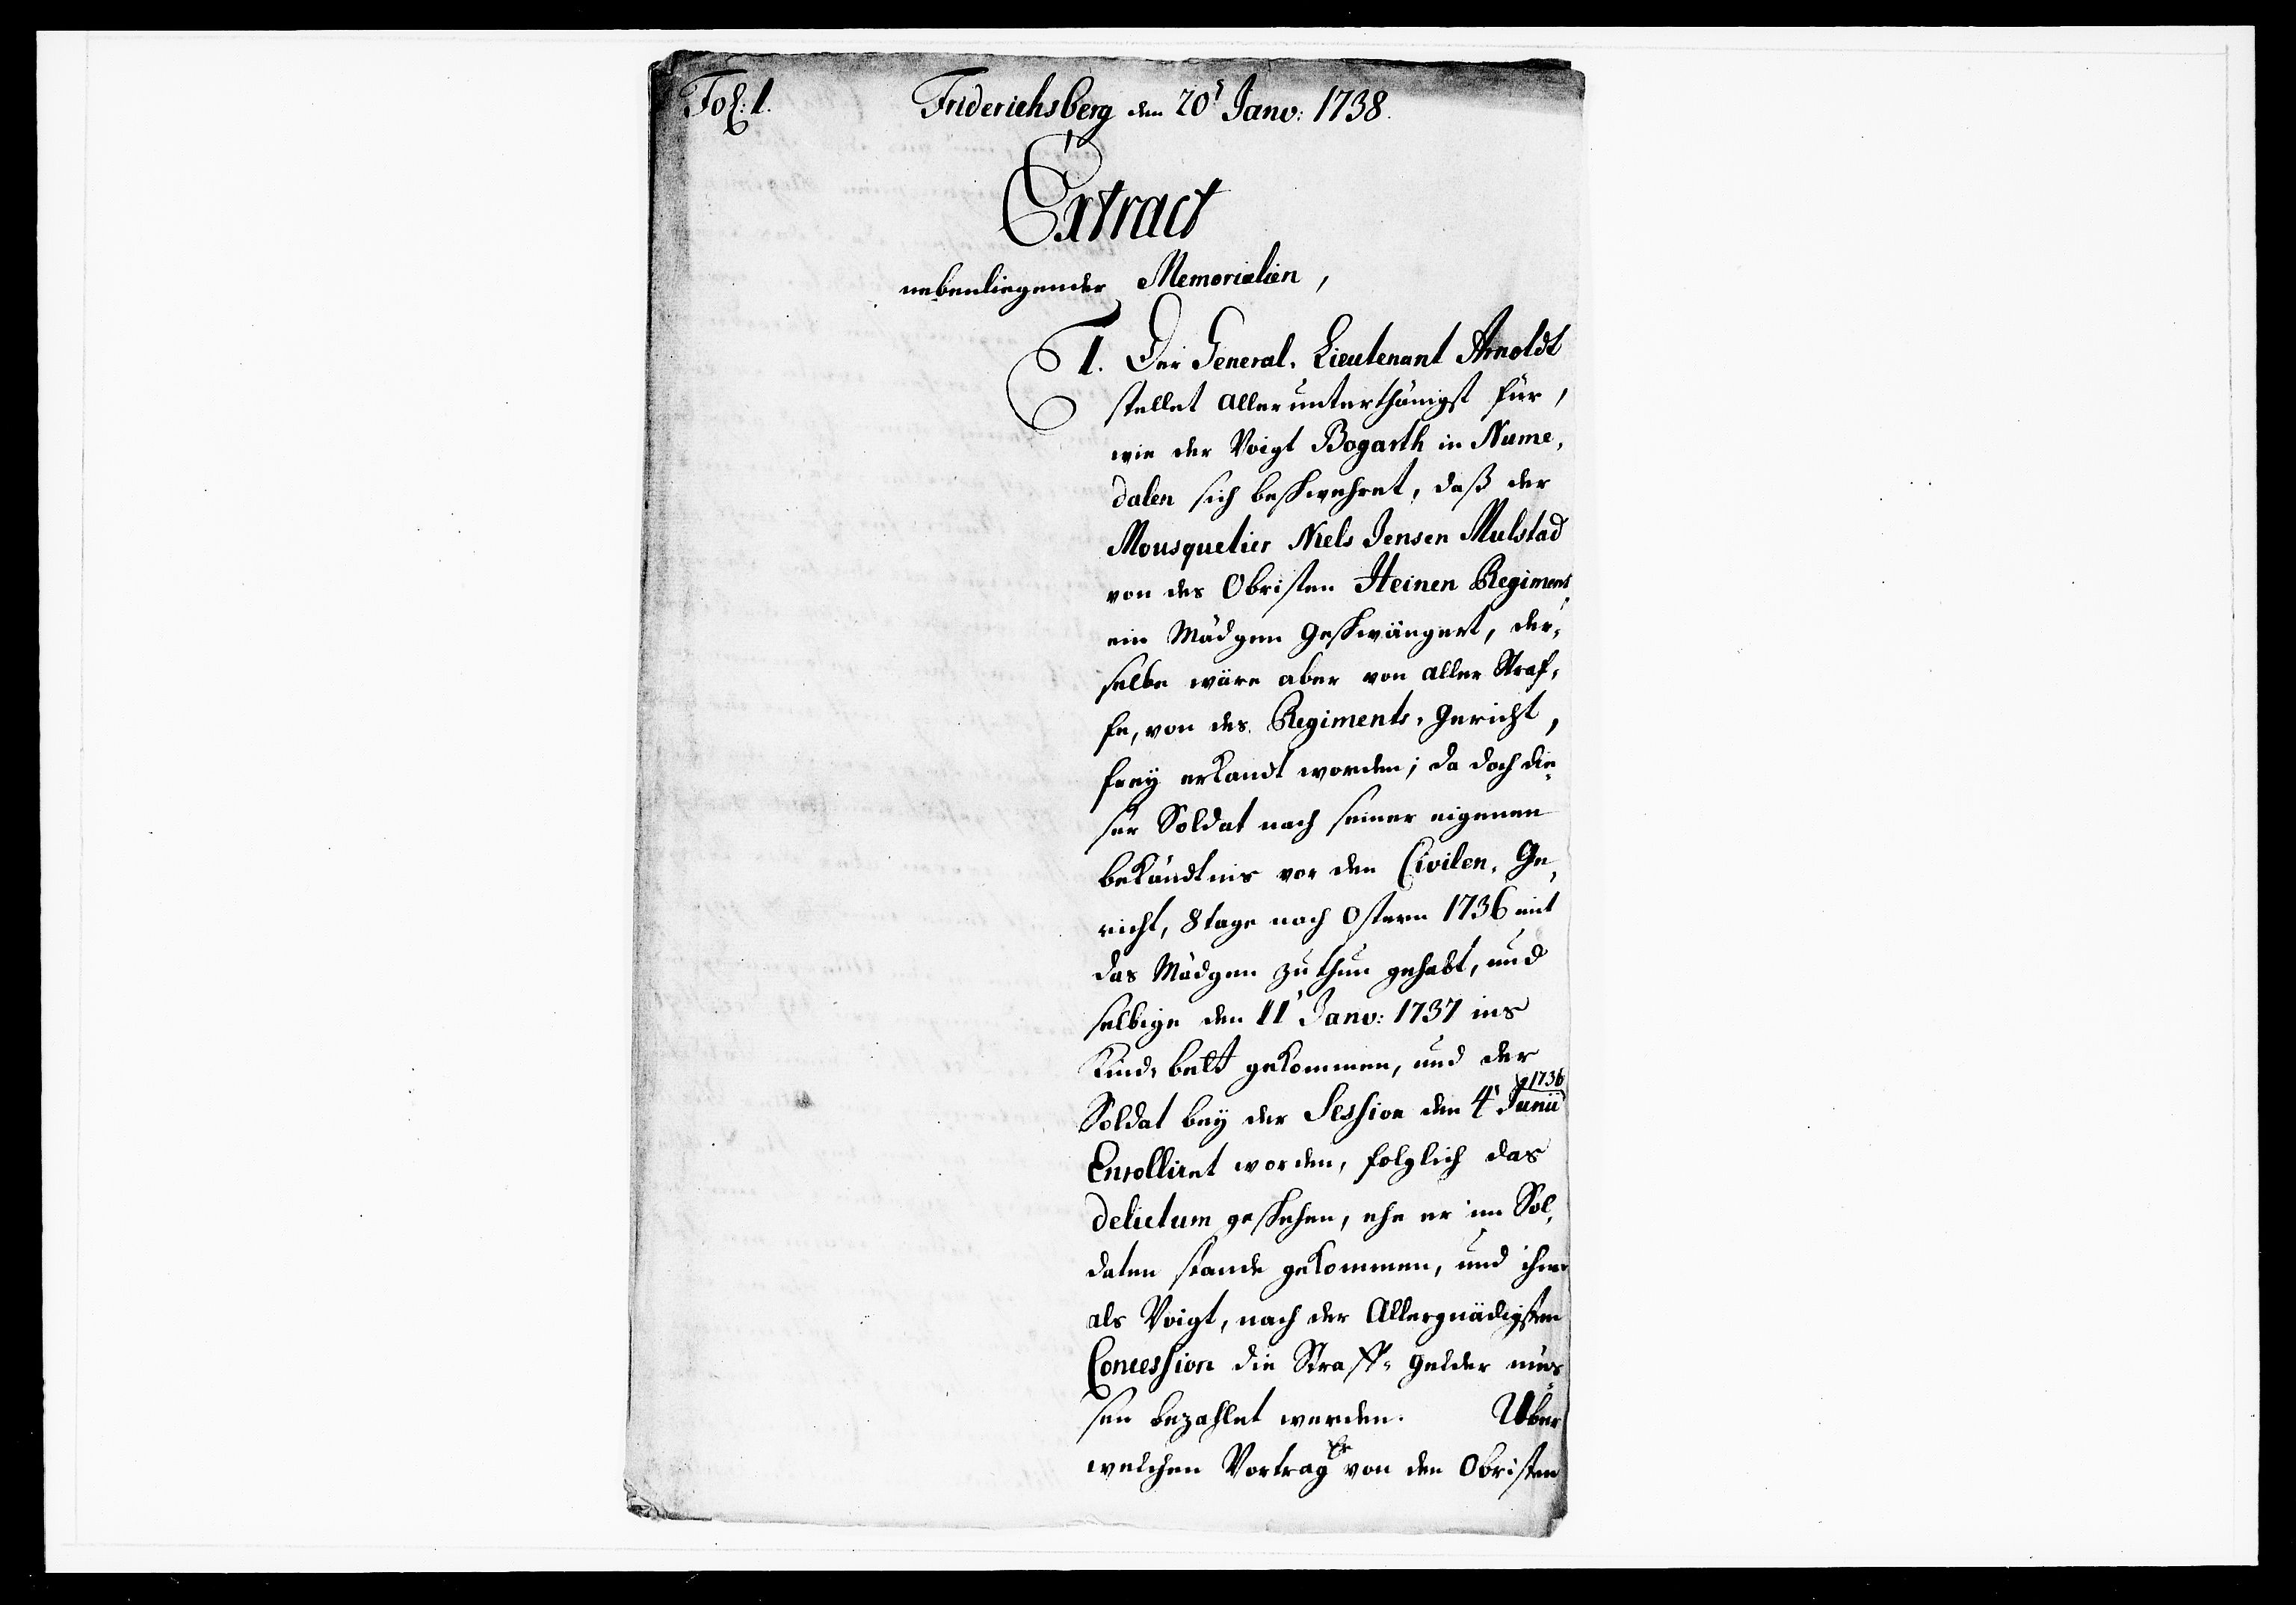 Fol: 1.
Friderichsberg den 20t Janv: 1738.
Extract
nebenliegender Memorialien,
1. Der General-Lieutenant Arnoldt
stellet allerunterthänigst für,
wie der Voigt Bogarth in Nume-
dalen sich beschwehret, daß der
Mousquetier Niels Jensen Mulstad
von des Obristen Heinen Regiment
ein Mädgen geschwängert, der-
selbe wäre aber von aller Straf-
fe, von des Regiments-Gericht,
frey erkandt worden; da doch die-
ser Soldat nach seiner eigenen
bekändtnis vor den Civilen-Ge-
richt, 8 tage nach Ostern 1736 mit
das Mädgen zu thun gehabt, und
selbige den 11t Janv: 1737 ins
Kind-bett gekommen, und der
Soldat bey der Session den 4t Junii 1736
Enrolliret worden, folglich das
delictum geschehen, ehe er im Sol-
daten stande gekommen, und ihme
als Voigt, nach der Allergnädigsten
Concession die Straff-gelder müs-
sen bezahlet werden. Uber
welchen Vortrag Er von den Obristen